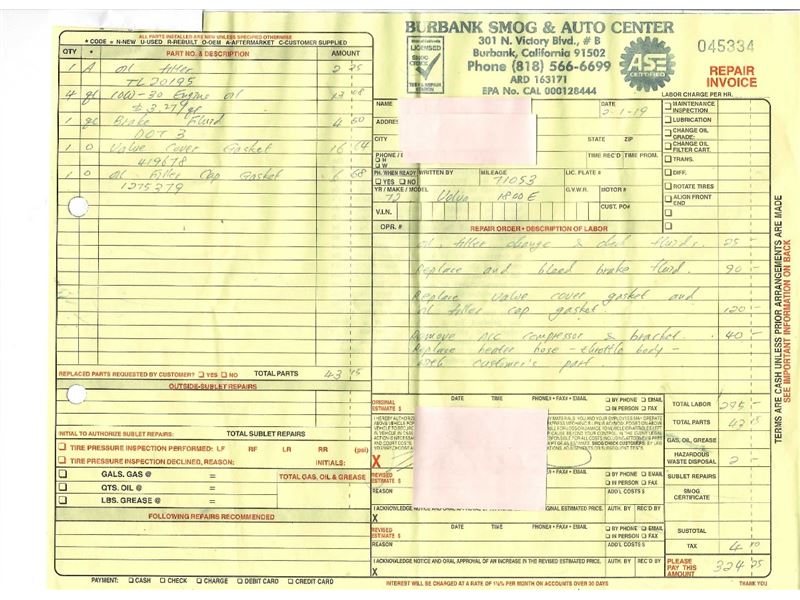 ALL PARTS ITEMS ARE NEW UNLESS SPECIFIED OTHERWISE
* CODE = N-NEW U-USED R-REBUILT O-OEM A-AFTERMARKET C-CUSTOMER SUPPLIED
QTY * PART NO. & DESCRIPTION AMOUNT
1 A oil filter
TL 20195
4 qt 10W-30 Engine oil
1 Brake Fluid
DOT 3
1 O Valve Cover Gasket 16 64
419678
1 O oil Filler Cap Gasket 6 68
1275379
REPLACED PARTS REQUESTED BY CUSTOMER? YES NO TOTAL PARTS 43 15
OUTSIDE-SUBLET REPAIRS
INITIAL TO AUTHORIZE SUBLET REPAIRS: TOTAL SUBLET REPAIRS
TIRE PRESSURE INSPECTION PERFORMED: LF RF LR RR (psi)
TIRE PRESSURE INSPECTION DECLINED, REASON: INITIALS:
GALS. GAS @ = TOTAL GAS, OIL & GREASE
QTS. OIL @ =
LBS. GREASE @ =
FOLLOWING REPAIRS RECOMMENDED
PAYMENT: CASH CHECK CHARGE DEBIT CARD CREDIT CARD
BURBANK SMOG & AUTO CENTER
301 N. Victory Blvd., # B
Burbank, California 91502
Phone (818) 566-6699
ARD 163171
EPA No. CAL 000128444
LICENSED
SMOG CHECK
ASE
CERTIFIED
045334
REPAIR
INVOICE
LABOR CHARGE PER HR.
NAME DATE 2-1-19
ADDRESS
CITY STATE ZIP
TIME REC'D TIME PROM.
PH. WHEN READY YES NO WRITTEN BY MILEAGE 71053 LIC. PLATE #
YR / MAKE / MODEL 72 Volvo 1800 E G.V.W.R. MOTOR #
V.I.N. CUST. PO#
MAINTENANCE INSPECTION
LUBRICATION
CHANGE OIL GRADE:
CHANGE OIL FILTER CART.
TRANS.
DIFF.
ROTATE TIRES
ALIGN FRONT END
OPR. # REPAIR ORDER • DESCRIPTION OF LABOR LABOR YOU
oil filter change & check fluids. 25 -
Replace and bleed brake fluid. 90 -
Replace valve cover gasket and
oil filler cap gasket. 120 -
Remove A/C compressor & bracket. 40 -
Replace heater hose - throttle body -
with customer's part
ORIGINAL ESTIMATE $ DATE TIME PHONE# • FAX# • EMAIL BY PHONE EMAIL IN PERSON FAX
X
REVISED ESTIMATE $ PHONE# • FAX# • EMAIL BY PHONE EMAIL IN PERSON FAX
REASON ADD'L COSTS $
I ACKNOWLEDGE NOTICE ORIGINAL ESTIMATED PRICE. AUTH. BY REC'D BY
X
REVISED ESTIMATE $ DATE TIME PHONE# • FAX# • EMAIL BY PHONE EMAIL IN PERSON FAX
REASON ADD'L COSTS $
I ACKNOWLEDGE NOTICE AND ORAL APPROVAL OF AN INCREASE IN THE REVISED ESTIMATED PRICE. AUTH. BY REC'D BY
X
TOTAL LABOR 275 -
TOTAL PARTS 43 15
GAS, OIL, GREASE
HAZARDOUS WASTE DISPOSAL 2 -
SUBLET REPAIRS
SMOG CERTIFICATE
SUBTOTAL
TAX 4 10
PLEASE PAY THIS AMOUNT 324 25
INTEREST WILL BE CHARGED AT A RATE OF 1½% PER MONTH ON ACCOUNTS OVER 30 DAYS
THANK YOU
TERMS ARE CASH UNLESS PRIOR ARRANGEMENTS ARE MADE
SEE IMPORTANT INFORMATION ON BACK